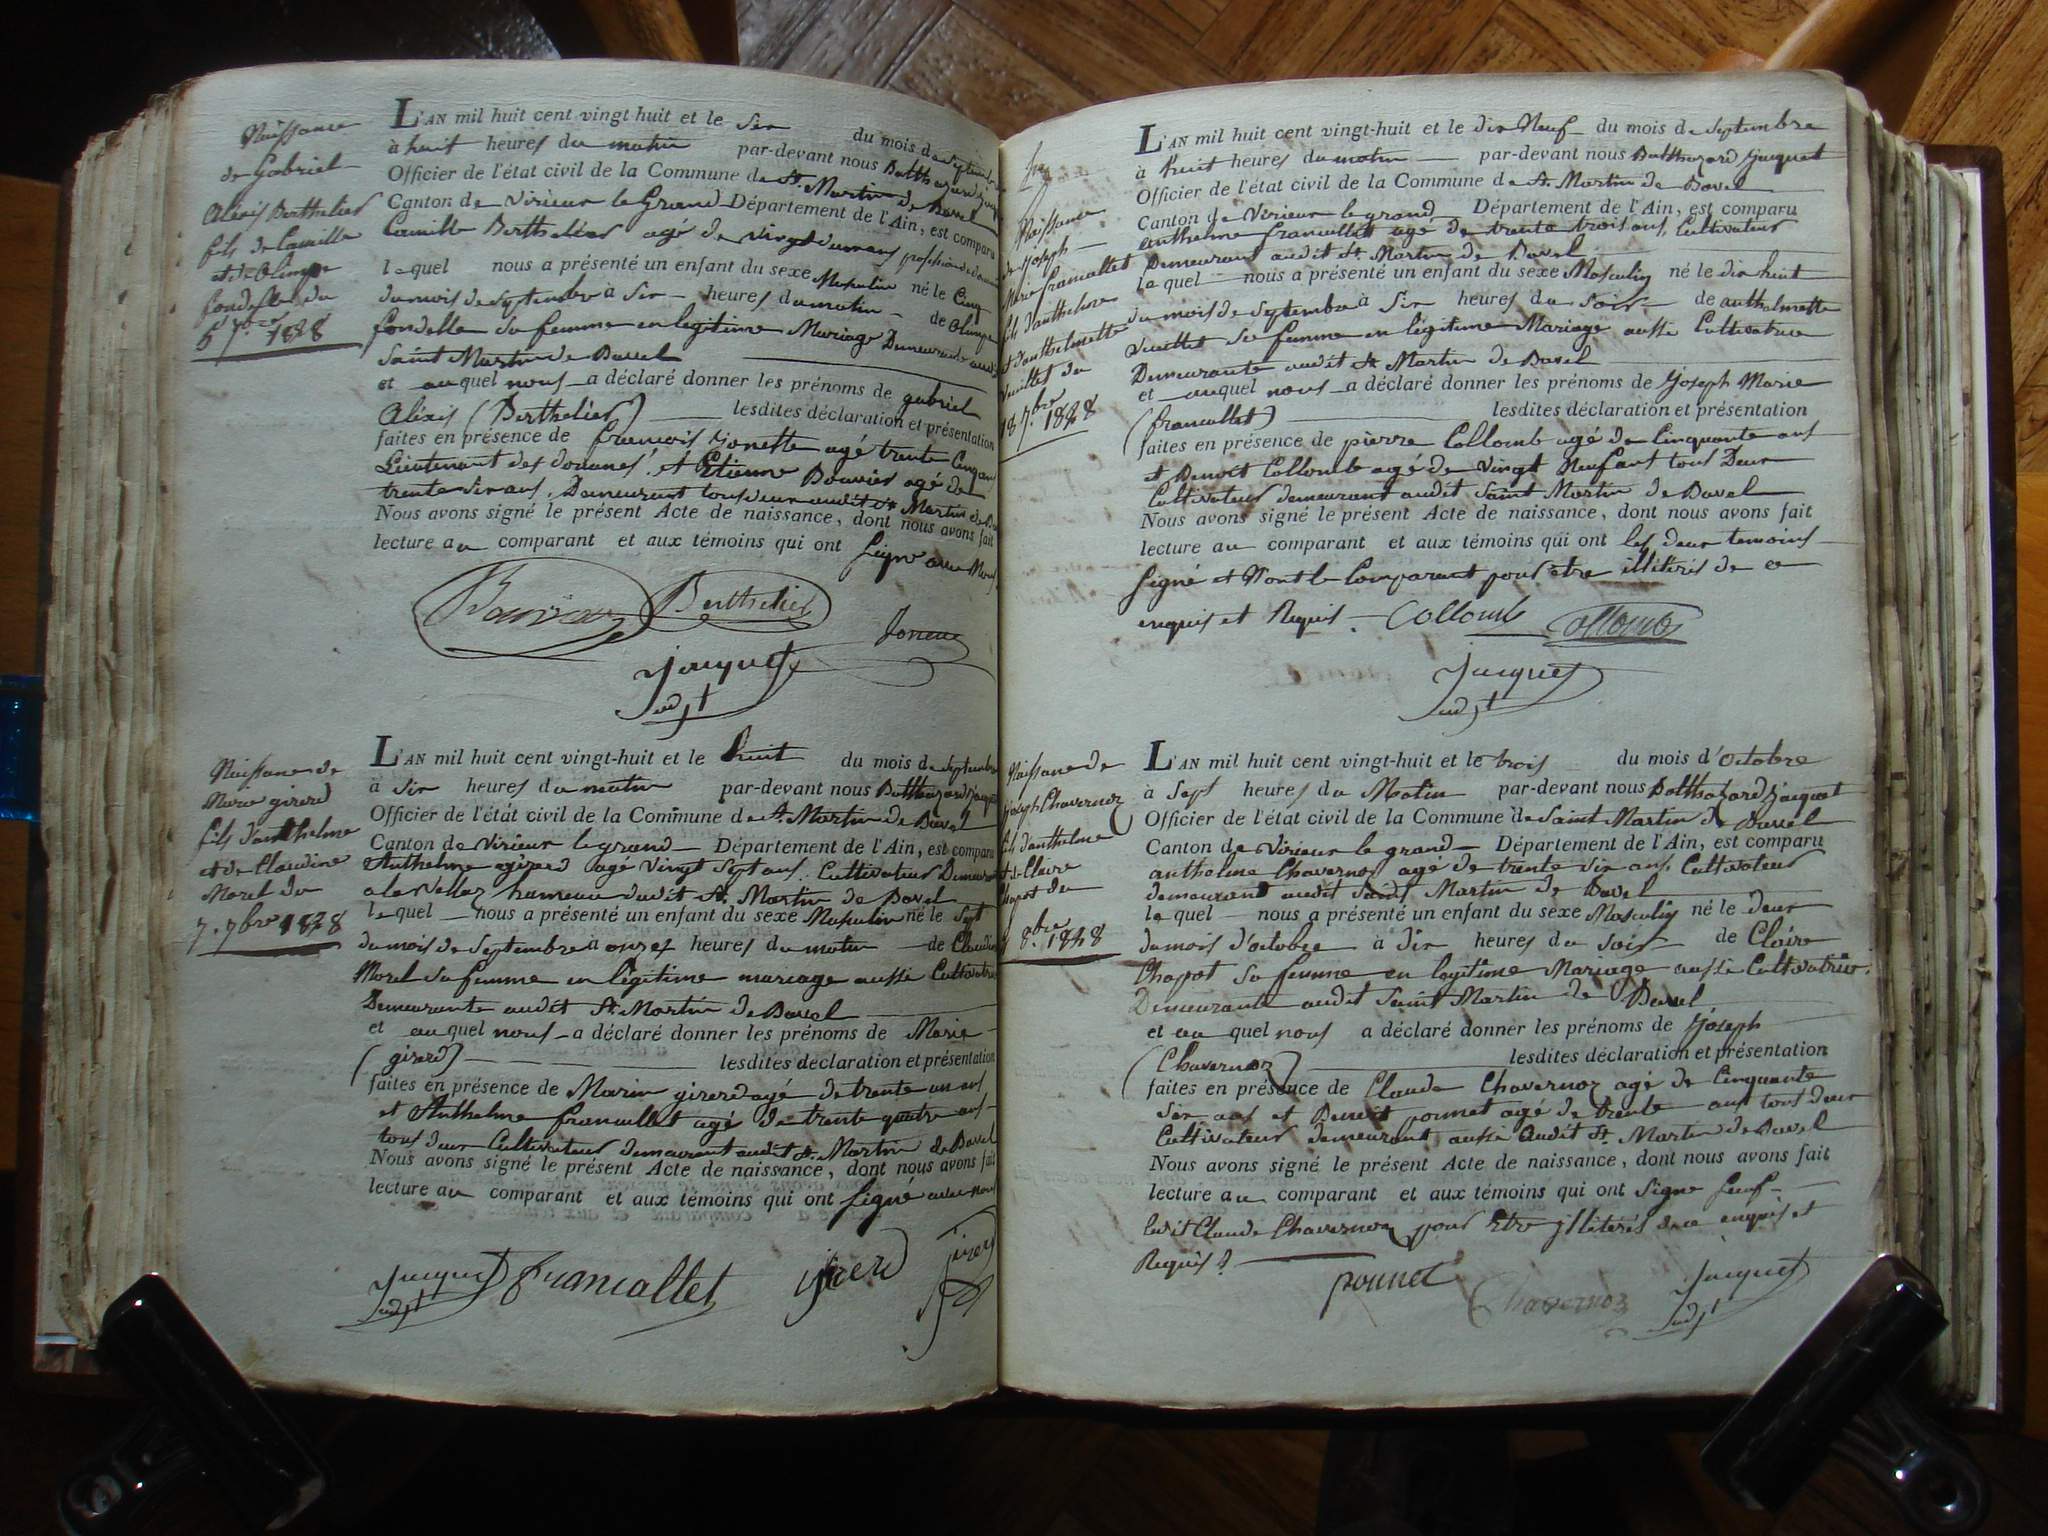 Naissance
de Gabriel
Alexis Berthelier
fils de Camille
et de Olimpe
fondelle du
5 7.bre 1828
L'AN mil huit cent vingt-huit et le six du mois de Septembre
à huit heures du matin par-devant nous Balthazard Jacquet
Officier de l'état civil de la Commune de St. Martin de Bavel
Canton de Virieux le Grand Département de l'Ain, est comparu
Camille Berthelier agé de vingt deux ans profession de
lequel nous a présenté un enfant du sexe Masculin né le Cinq
du mois de Septembre à six heures du matin de Olimpe
fondelle sa femme en legitime Mariage Demeurante audit
Saint Martin de Bavel
et auquel nous a déclaré donner les prénoms de gabriel
Alexis (Berthelier) lesdites déclaration et présentation
faites en présence de francois Jonette agé trente Cinq ans
Lieutenant des douanes, et Etienne Bouvier agé de
trente six ans, Demeurant tous deux audit St Martin de Bavel
Nous avons signé le présent Acte de naissance, dont nous avons fait
lecture au comparant et aux témoins qui ont signé avec Nous
Bouvier Berthelier
Jacquet
Naissance de
Marie girerd
fils d'anthelme
et de Claudine
Morel du
7. 7bre 1828
L'AN mil huit cent vingt-huit et le huit du mois de Septembre
à six heures du matin par-devant nous Balthazard Jacquet
Officier de l'état civil de la Commune de St. Martin de Bavel
Canton de Virieux le grand Département de l'Ain, est comparu
Anthelme girerd agé vingt Sept ans, Cultivateur Demeurant
a la Vellaz hameau dudit St. Martin de Bavel
lequel nous a présenté un enfant du sexe Masculin né le Sept
du mois de Septembre à onzes heures du matin de Claudine
Morel sa femme en légitime mariage aussi Cultivatrice
Demeurante audit St. Martin de Bavel
et auquel nous a déclaré donner les prénoms de Marie
(girerd) lesdites déclaration et présentation
faites en présence de Marin girerd agé de trente un ans
et Anthelme francallet agé de trente quatre ans
tous deux Cultivateurs demeurant audit St. Martin de Bavel
Nous avons signé le présent Acte de naissance, dont nous avons fait
lecture au comparant et aux témoins qui ont signé avec nous
Jacquet francallet girerd
Naissance
de Joseph
Marie francallet
fils d'anthelme
et d'anthelmette
Vuillet du
18 7.bre 1828
L'AN mil huit cent vingt-huit et le dix Neuf du mois de Septembre
à huit heures du matin par-devant nous Balthazard Jacquet
Officier de l'état civil de la Commune de St. Martin de Bavel
Canton de Virieux le grand Département de l'Ain, est comparu
anthelme francallet agé de trente trois ans, Cultivateur
Demeurant audit St. Martin de Bavel
lequel nous a présenté un enfant du sexe Masculin né le dix huit
du mois de Septembre à six heures du soir de anthelmette
Vuillet sa femme en légitime Mariage aussi Cultivatrice
Demeurante audit St Martin de Bavel
et auquel nous a déclaré donner les prénoms de Joseph Marie
(francallet) lesdites déclaration et présentation
faites en présence de pierre Collomb agé de Cinquante ans
et Benoit Collomb agé de Vingt Neuf ans tous Deux
Cultivateurs demeurant audit Saint Martin de Bavel
Nous avons signé le présent Acte de naissance, dont nous avons fait
lecture au comparant et aux témoins qui ont les deux temoins
signé et Non le Comparant pour être illiteris de ce
enquis et Requis. Collomb Collomb
Jacquet
Naissance de
Joseph Chavernoz
fils d'anthelme
et de Claire
Chapot du
8.bre 1828
L'AN mil huit cent vingt-huit et le trois du mois d'Octobre
à Sept heures du Matin par-devant nous Balthazard Jacquet
Officier de l'état civil de la Commune de Saint Martin de Bavel
Canton de Virieux le grand Département de l'Ain, est comparu
anthelme Chavernoz agé de trente six ans, Cultivateur
demeurant audit Saint Martin de Bavel
lequel nous a présenté un enfant du sexe Masculin né le deux
du mois d'octobre à dix heures du soir de Claire
Chapot sa femme en legitime Mariage aussi Cultivatrice
Demeurante audit Saint Martin de Bavel
et au quel nous a déclaré donner les prénoms de Joseph
(Chavernoz) lesdites déclaration et présentation
faites en présence de Claude Chavernoz agé de Cinquante
six ans et Benoit ponnet agé de trente ans tous deux
Cultivateurs demeurant aussi audit St. Martin de Bavel
Nous avons signé le présent Acte de naissance, dont nous avons fait
lecture au comparant et aux témoins qui ont signé sauf
ledit Claude Chavernoz pour Etre illiteris de ce enquis et
Requis
ponnet Chavernoz Jacquet